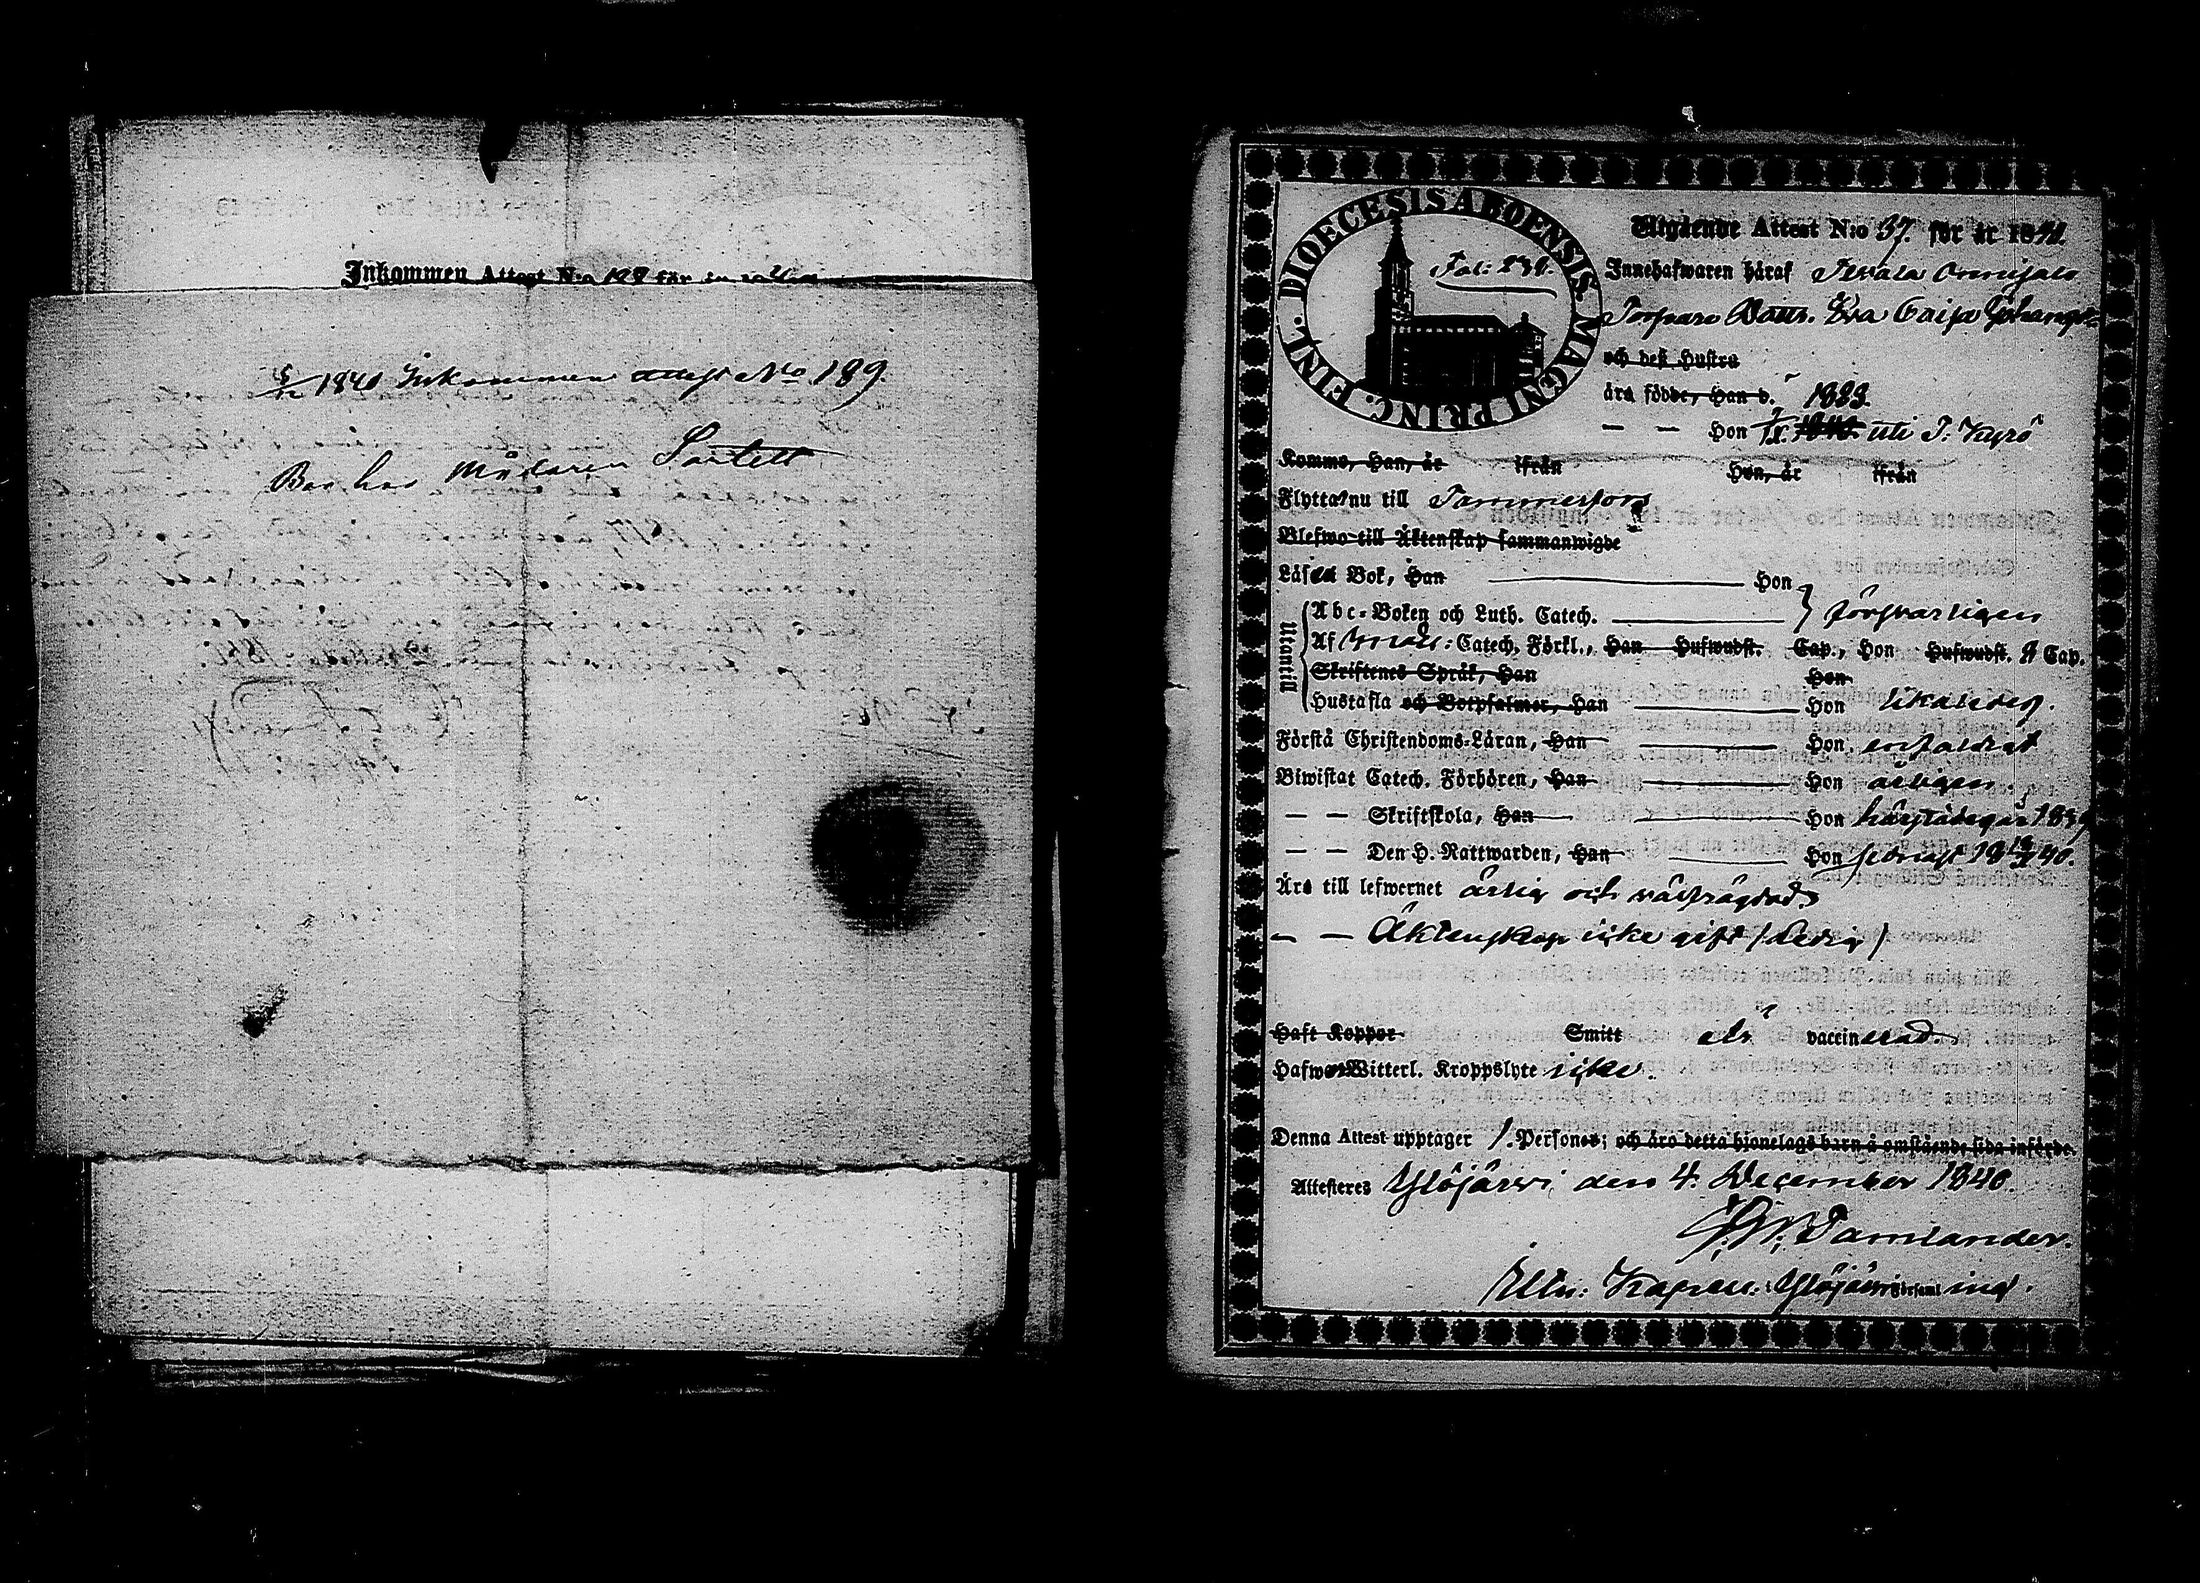 Inkommen Attest N:o
5/12 1840 Inkommen attest No 189.
Bor hos Målaren
DIOECESIS ABOENSIS. MAGNI PRINC. FINL.
Fol: 239.
Utgående Attest N:o 37. för år 1840.
Innehafwaren häraf
Torpare Dottr. Eva Caisa Johansdr
och deß Hustru
äro födde, Han d. 1823.
— — Hon uti T: Kyrö
Kommo, Han, år ifrån Hon, år ifrån
Flytta nu till Tammerfors
Blefwo till Äktenskap sammanwigde
Läsa Bok, Han Hon
Utantill
Abc-Boken och Luth. Catech. försvarligen
Af Catech. Förkl., Han Hufwudst. Cap., Hon Hufwudst. Cap.
Skriftenes Språk, Han Hon
Hustafla och Botpsalmer, Han Hon likaledes.
Förstå Christendoms-Läran, Han Hon enfaldigt
Biwistat Catech. Förhören, Han Hon årligen
— — Skriftskola, Han Hon härstädes år 1839
— — Den H. Nattwarden, Han Hon sednast 18 40.
Äro till lefwernet ärlig och välfrägdad.
— — Äktenskap icke gift (Ledig)
Haft Koppor Smitt vaccinerad.
Hafwa Witterl. Kroppslyte icke.
Denna Attest upptager 1. Personer; och äro detta hjonelags barn å omstående sida införde.
Attesteres Ylöjärvi den 4. December 1840.
Damlander.
Ylöjärvi Församl